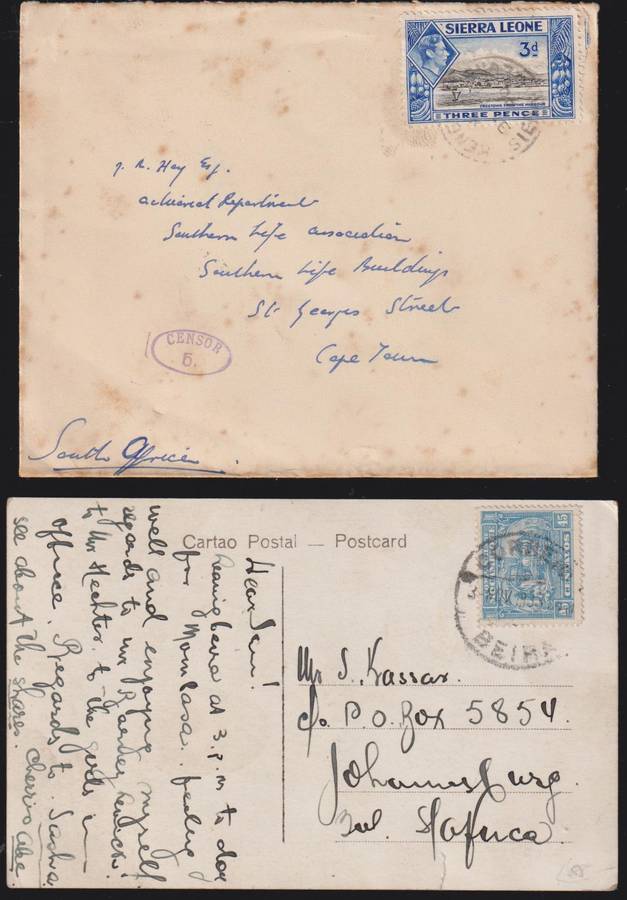 SIERRA LEONE
3d
FREETOWN FROM THE HARBOUR
THREE PENCE
REGIS
KENE
J. R. Hay Esq.
Actuarial Department
Southern Life Association
Southern Life Buildings
St Georges Street
Cape Town
CENSOR
5.
South Africa.
Cartao Postal — Postcard
45
45
CENTAVOS
BEIRA
Mr S. Kassar.
c/o P.O. Box 5854.
Johannesburg.
S/Africa.
Dear Sam!
Leaving here at 3.p.m to day
for Mombasa. feeling
well and enjoying myself
regards to
to Mr Hechter. to the girls in
office. Regards to
see about the shares. cherrio Abe.